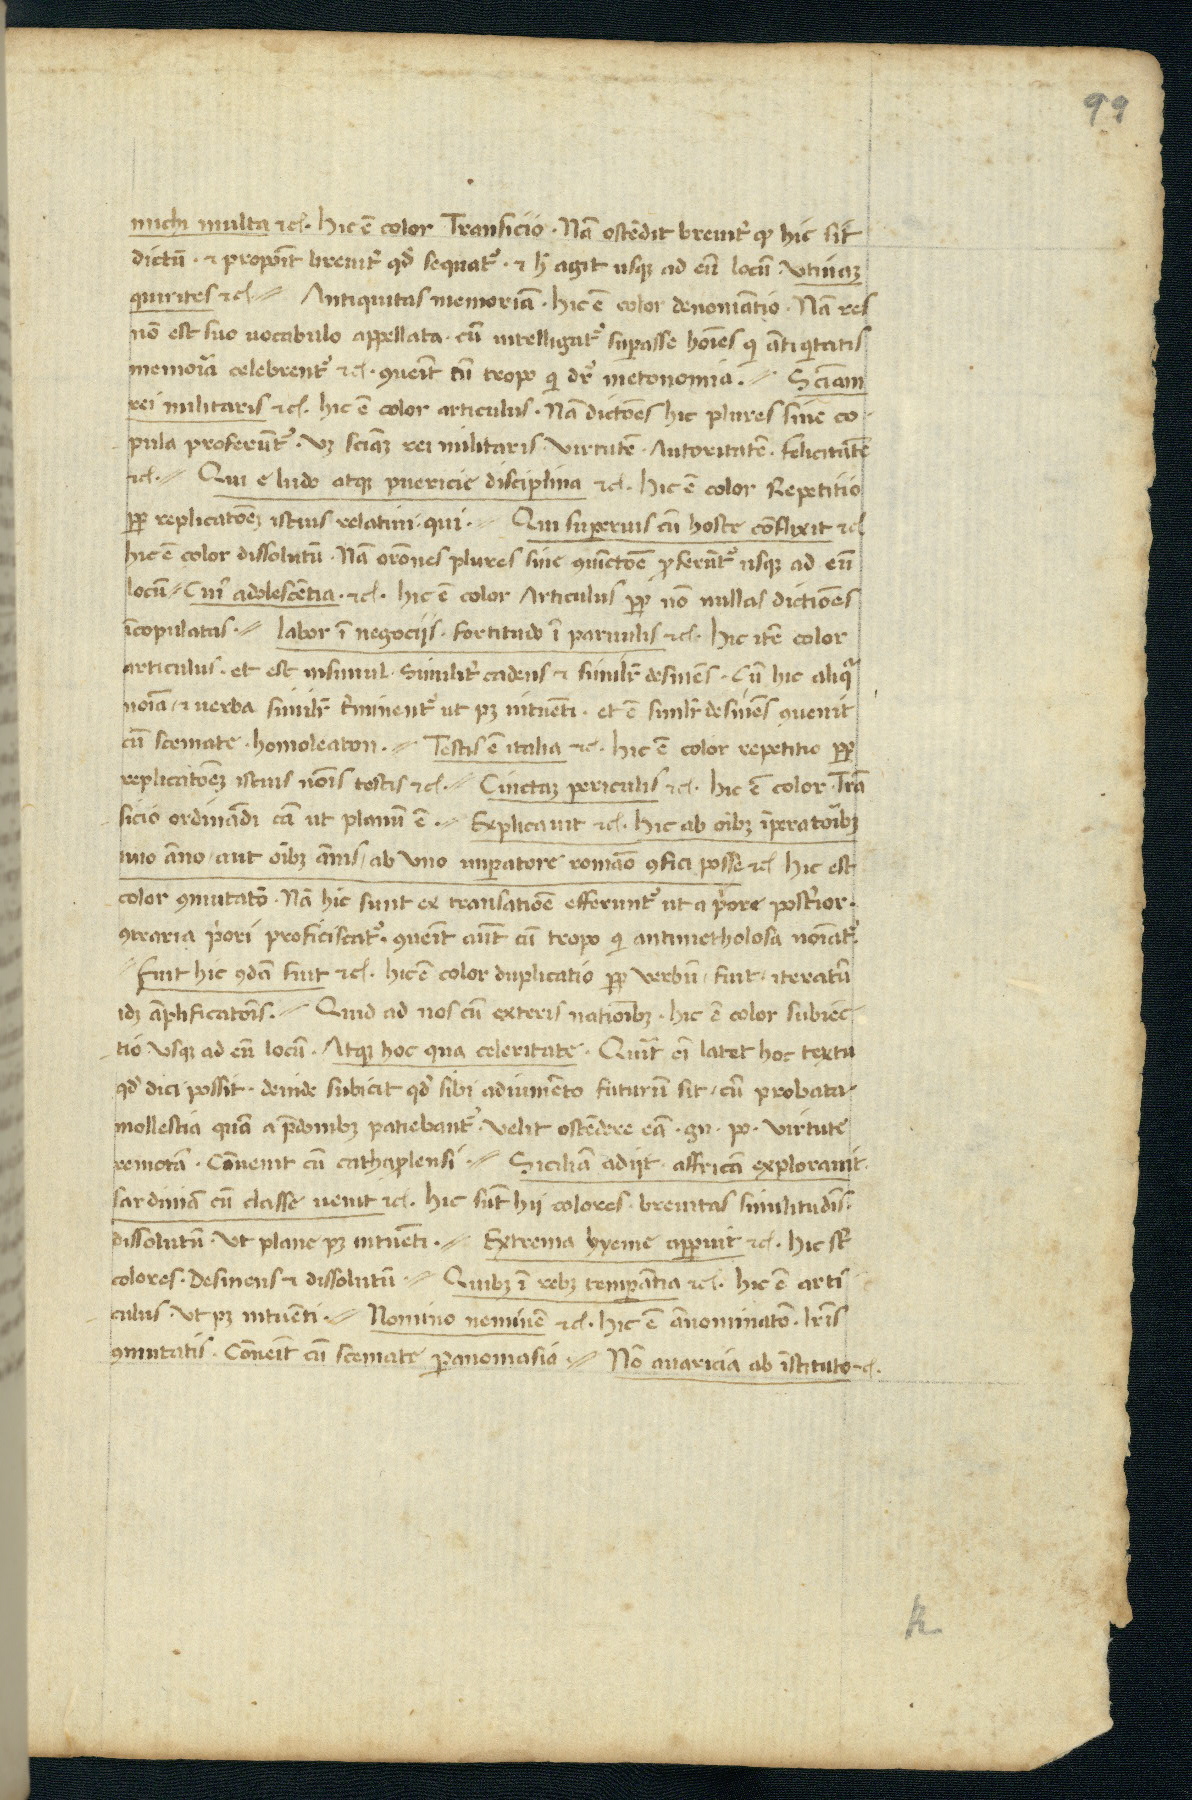 99
michi multa etc̄. hic ē color Transicio. Nā ostēdit breuit᷑ qͦ hic sit
dictū. et proponit breuit᷑ qđ sequat᷑. et h̄ agit usqꝫ ad eū locū. Vtinaꝫ
quirites etc̄ // Antiquitas memoriā. hic ē color denomiātio. Nā res
nō est suo uocabulo appellata. cū intelligat᷑ supasse hoīes qi ātiqͥtatis
memoīa celebrent᷑ etc̄. 9ueīt cū tropo qi dr᷑ metonomia. // Sciam
rei militaris etc̄. hic ē color articulus. Nā dictōes hic plures sine co-
pula proferūt᷑. Vꝫ sciaꝫ rei militaris. Virtutē. Autoritatē. felicitatē
etc̄. // Qui e ludo atqꝫ puericie disciplina etc̄. hic ē color Repetitio
ꝓꝑ replicatōeꝫ istius relatiui. qui. // Qui sepius cū hoste cōflixit etc̄
hic ē color dissolutū. Nā orōnes plures sine 9iūctōe ꝓferūt᷑ usqꝫ ad eū
locū // Cui᷑ adolescētia. etc̄. hic ē color Articulus ꝓꝑ nō nullas dictiōes
īcopulatas. // labor ī negocijs. fortitudo ī pariculis etc̄. hic itē color
articulus. et est insimul. Similit᷑ cadens et simil᷑r desinēs. Cū hic aliqͣ
noīa / et uerba simil᷑r t᷑minent᷑ ut pꝫ intuēti. et ē simil᷑r desinēs 9uenit
cū scemate. homoleaton. // Testis ē italia etc. hic ē color repetitio ꝓꝑ
replicatōeꝫ istius noīs testis etc̄. // Cinctaꝫ periculis etc̄. hic ē color. Trā
sicio ordinādi cā ut planū ē. // Explicauit etc̄. hic ab oībꝫ īperatoībꝫ
uno āno / aut oībꝫ ānis / ab Vno imperatore romāo 9fici posse etc̄ hic est
color 9mutatō. Nā hic sunt ex transatiōe efferunt᷑ ut a pͥore post᷑ior.
9traria pͥori proficiscat᷑. 9ueīt aūt cū tropo qi antimetholosa noīat᷑.
// Fuit hic 9dā fuit etc̄. hic ē color duplicatio ꝓꝑ verbū / fuit / iteratū
idꝫ āplificatōis. // Quid ad nos cū exteris natioībꝫ. hic ē color subiec-
tio. Vsqꝫ ad eū locū. Atqꝫ hoc qua celeritate. Querit eī latet hoc textu
qđ dici possit. deinde subicit qđ sibi adiumēto futurū sit / cū probata
mollestia quā a p̄donibꝫ patiebant᷑. Velit ostēdere eā. gn. po. Virtute
remotā. Cōuenit cū cathaplensi. // Siciliā adijt. affricā explorauit.
sardiniā cū classe uenit etc̄. hic sūt hij colores. breuitas similitudīs.
dissolutū. Vt plane pꝫ intuēti. // Extrema hyeme apparuit etc̄. hic st᷑
colores. Desinens et dissolutū. // Quibꝫ ī rebꝫ temperātia etc̄. hic ē arti
culus. Vt pꝫ intuēti. // Nomino neminē etc̄. hic ē ānominatō. lr̄is
9mutatis. Cōueīt cū scemate panomasia. // Nō auaricia ab īstituto etc̄.
k